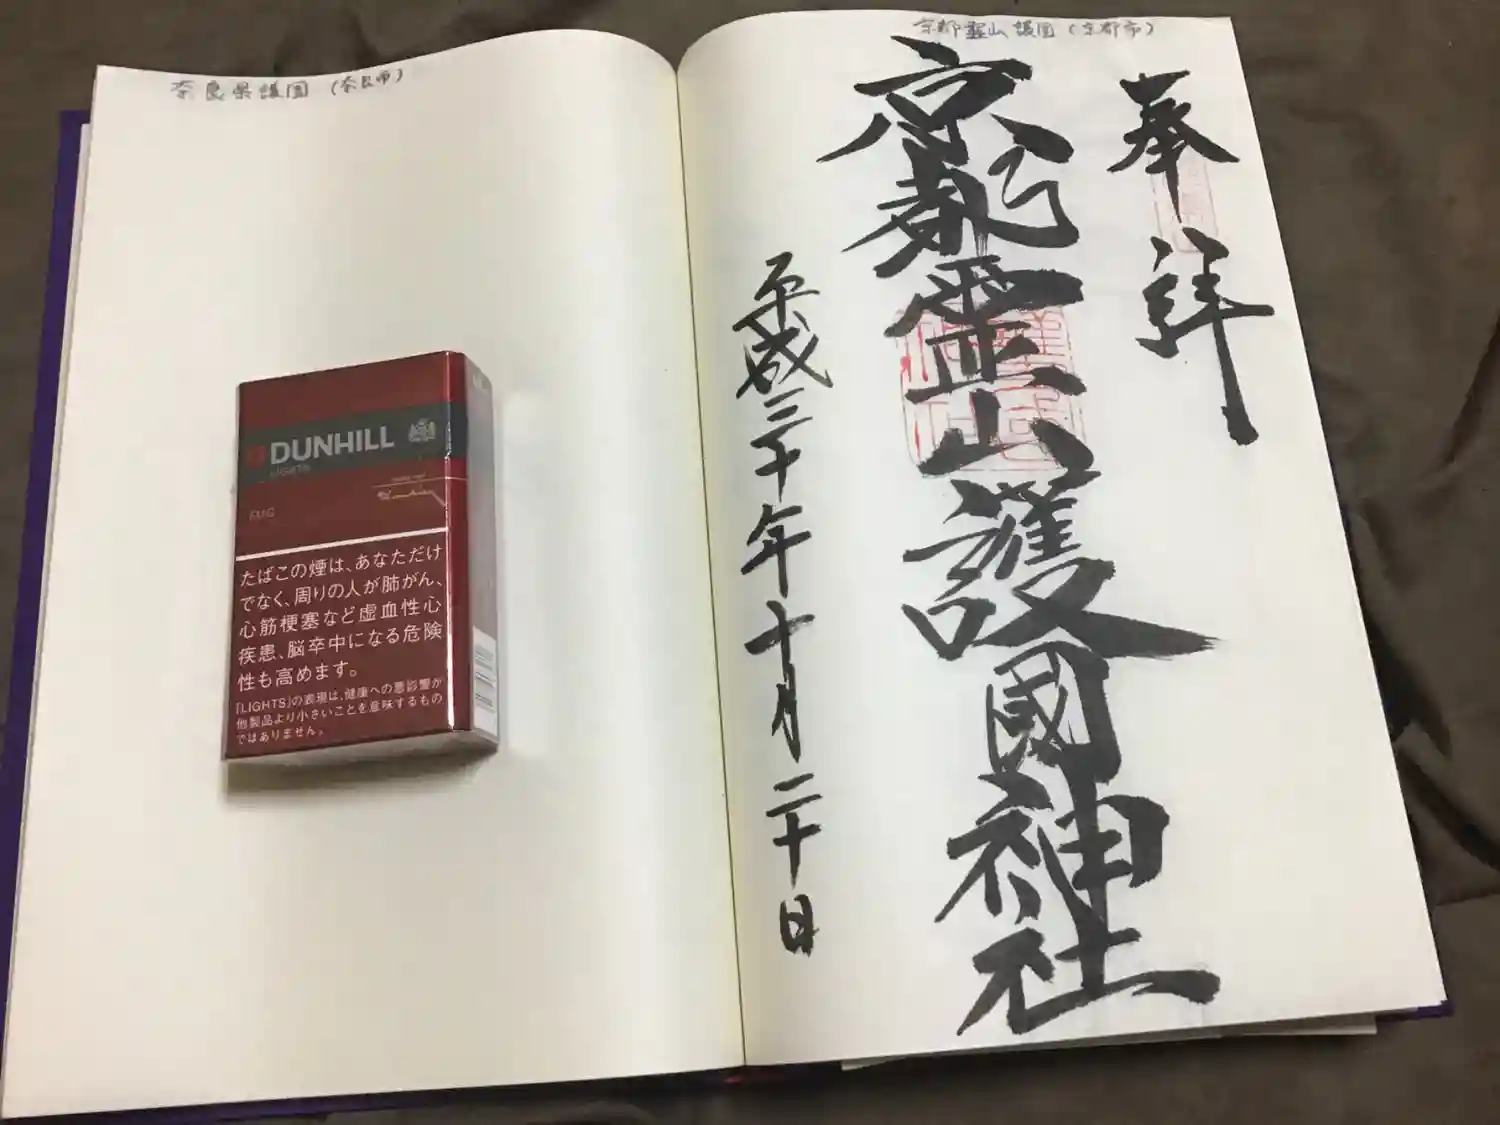 奈良県護国（奈良市）
京都霊山護国（京都市）
奉拝
京都霊山護國神社
平成三十年十月二十日
DUNHILL
LIGHTS
たばこの煙は、あなただけ
でなく、周りの人が肺がん、
心筋梗塞など虚血性心
疾患、脳卒中になる危険
性も高めます。
「LIGHTS」の表現は、健康への悪影響が
他製品より小さいことを意味するもの
ではありません。